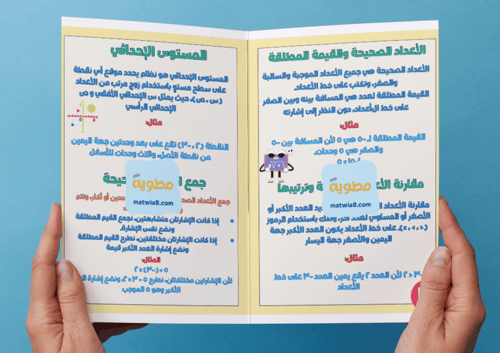 الأعداد الصحيحة والقيمة المطلقة
الأعداد الصحيحة هي جميع الأعداد الموجبة والسالبة
والصفر، وتكتب على خط الأعداد.
القيمة المطلقة لعدد هي المسافة بينه وبين الصفر
على خط الأعداد، دون النظر إلى إشارته
مثال:
القيمة المطلقة لـ -٥ هي ٥ لأن المسافة بين -٥
والصفر هي ٥ وحدات.
مقارنة الأعداد وترتيبها
مقارنة الأعداد العدد الأكبر أو
الأصغر أو المساوي باستخدام الرموز
(>، <، =). على خط الأعداد يكون الأكبر جهة
اليمين والأصغر جهة اليسار
مثال:
-٣ < ٢ لأن العدد ٢ يقع يمين العدد -٣ على خط
الأعداد
مطوية
matwia8.com
المستوى الإحداثي
المستوى الإحداثي هو نظام يحدد موقع أي نقطة
على سطح مستوٍ باستخدام زوج مرتب من الأعداد
(س، ص)، حيث يمثل س الإحداثي الأفقي و ص
الإحداثي الرأسي
مثال:
النقطة (٢، -٣) تقع على بعد وحدتين جهة اليمين
من نقطة الأصل، وثلاث وحدات للأسفل
جمع الصحيحة
جمع الأعداد عددين أو أكثر، وتتم
إذا كانت الإشارتان متشابهتين، نجمع القيم المطلقة
ونضع نفس الإشارة.
إذا كانت الإشارتان مختلفتين، نطرح القيم المطلقة
ونضع إشارة العدد الأكبر قيمة
المثال:
٥ + (-٣) = ٢
لأن الإشارتين مختلفتان، نطرح ٥ - ٣ = ٢، ونضع إشارة
الأكبر وهو ٥ الموجب
مطوية
matwia8.com